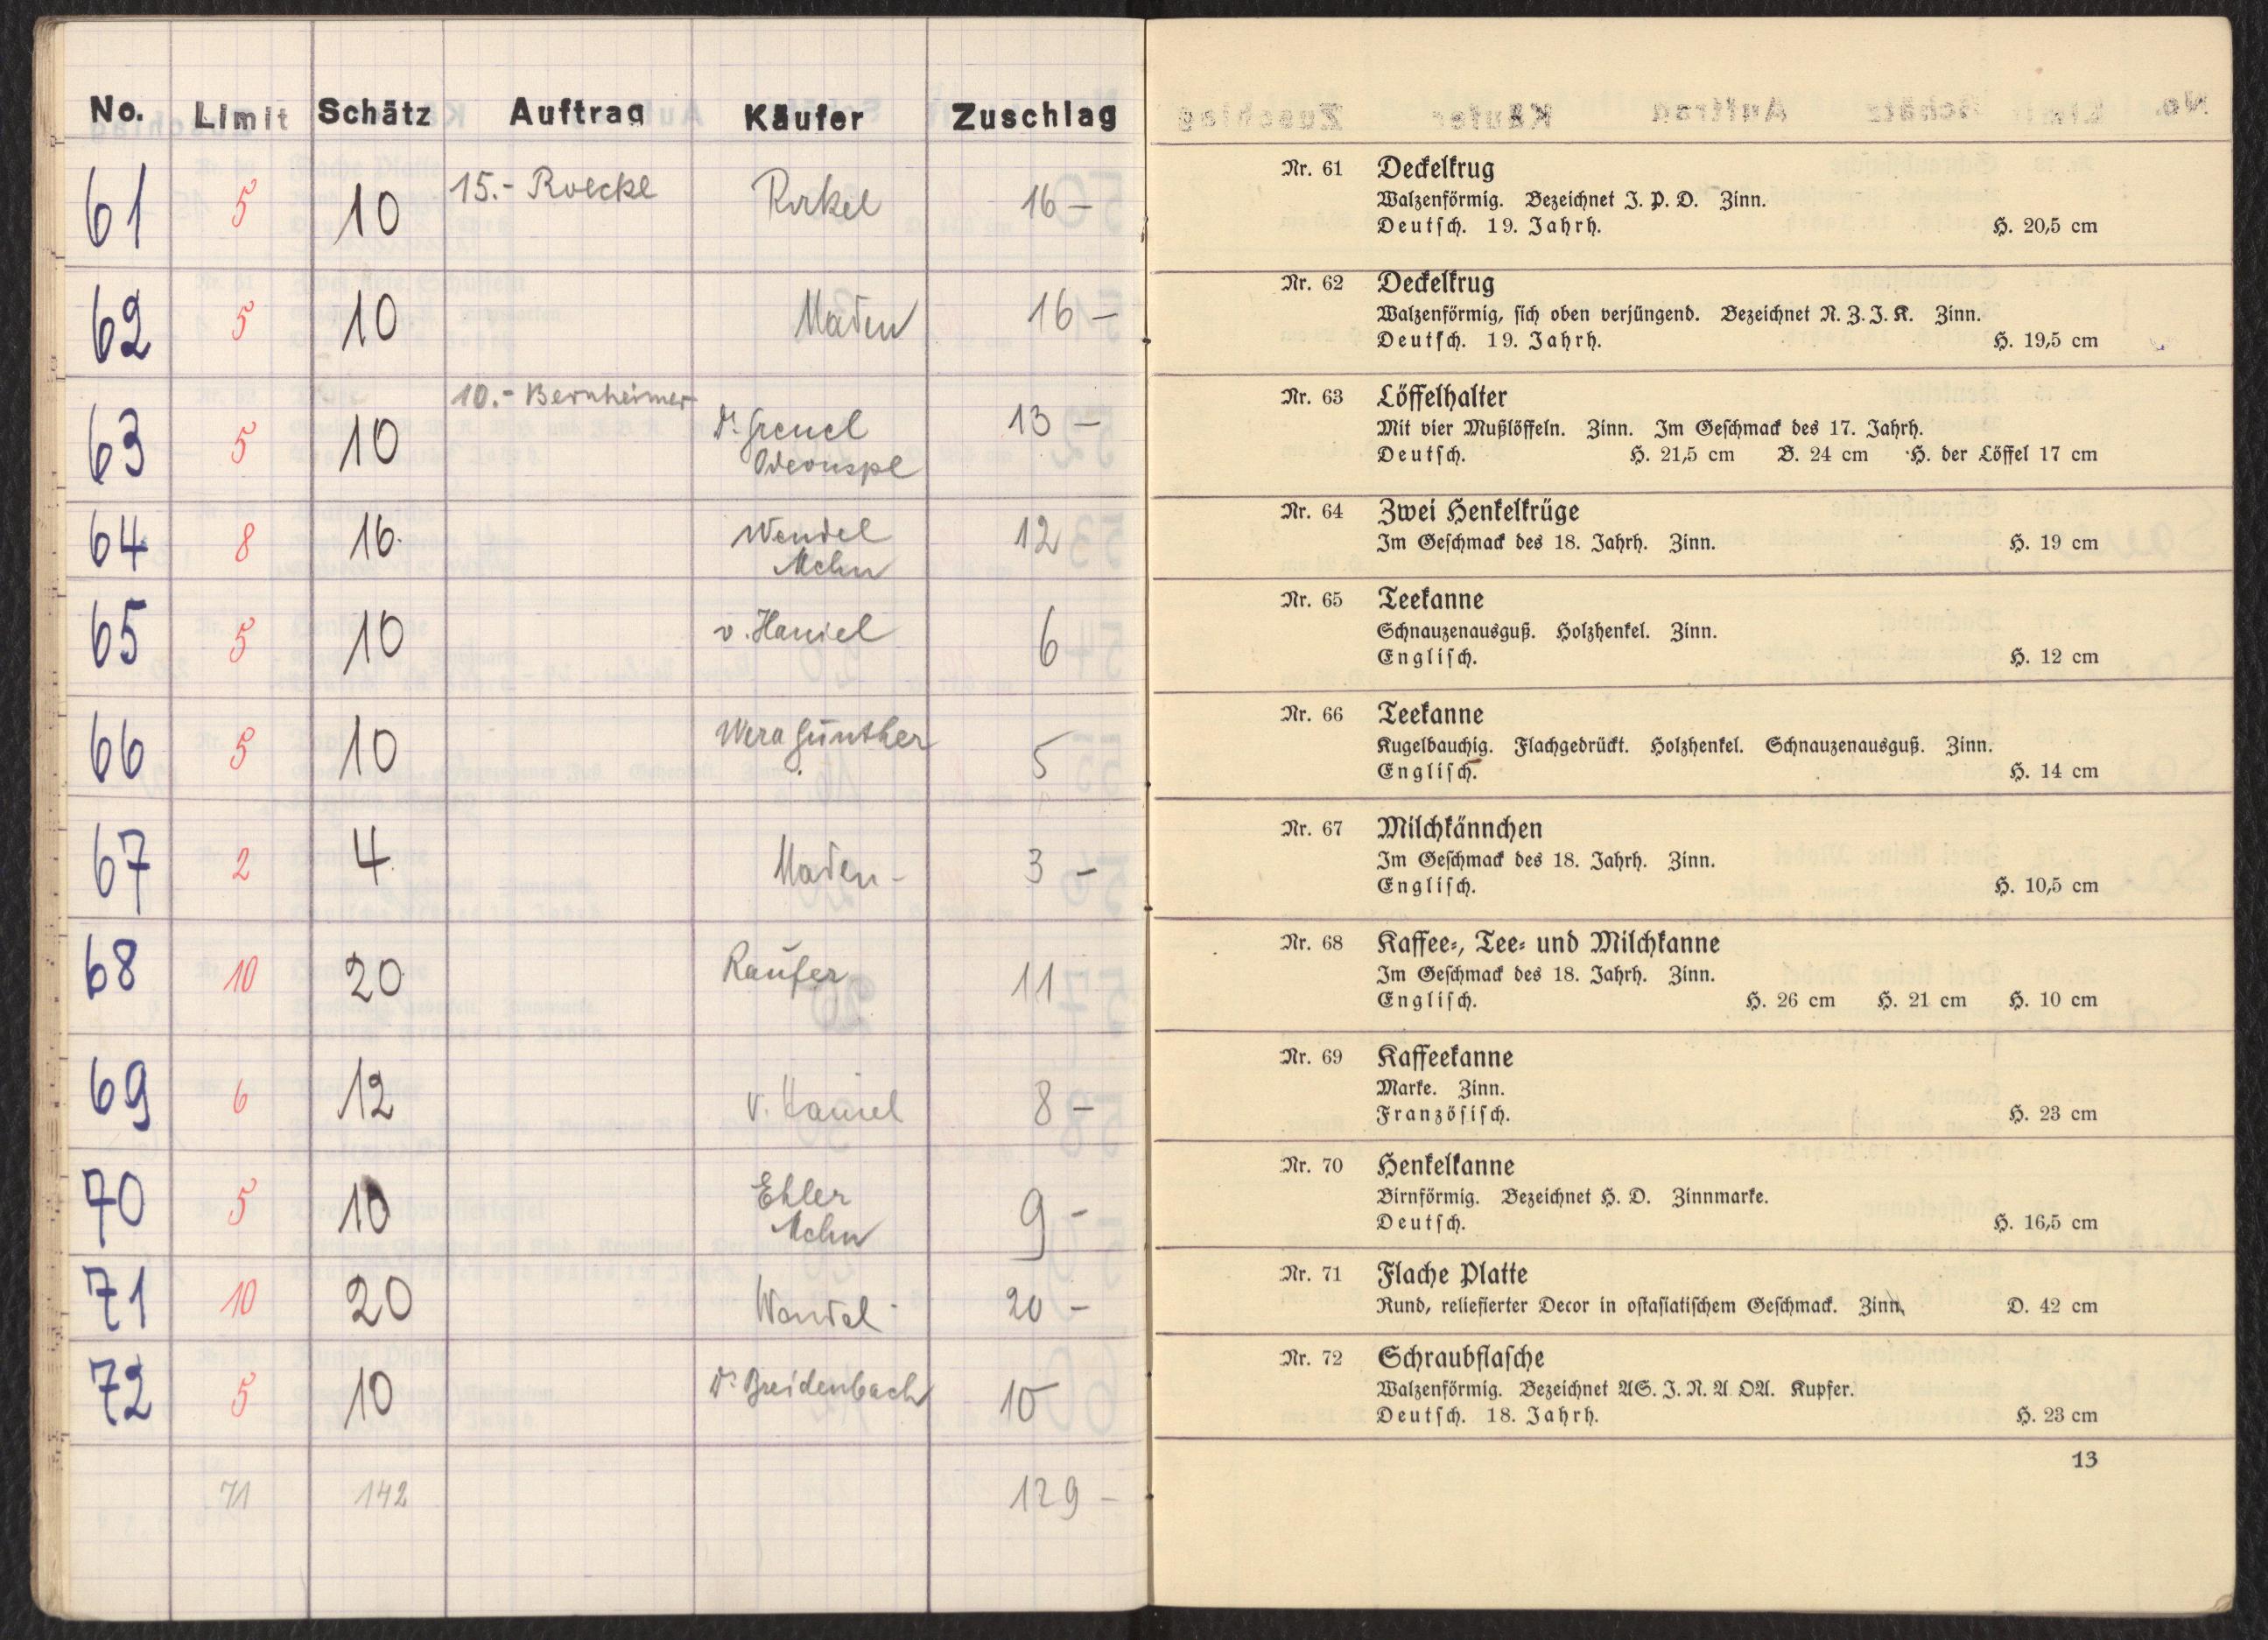 No. Limit Schätz Auftrag Käufer Zuschlag
61 5 10 15.- Roeckl 16 -
62 5 10 Maden 16 -
63 5 10 10.- Bernheimer Dr. 13 -
Odeonspl
64 8 16. Wendel 12
Mchn
65 5 10 v. Haniel 6
66 5 10 Wera Günther 5
67 2 4. Maden - 3 -
68 10 20 Raufer 11
69 6 12 v. Haniel 8 -
70 5 10 Ehler 9 -
Mchn
71 10 20 Wendel 20 -
72 5 10 Dr. Breidenbach 10
71 142 129 -
Nr. 61 Deckelkrug
Walzenförmig. Bezeichnet J. P. D. Zinn.
Deutsch. 19. Jahrh. H. 20,5 cm
Nr. 62 Deckelkrug
Walzenförmig, sich oben verjüngend. Bezeichnet N. Z. J. K. Zinn.
Deutsch. 19. Jahrh. H. 19,5 cm
Nr. 63 Löffelhalter
Mit vier Mußlöffeln. Zinn. Im Geschmack des 17. Jahrh.
Deutsch. H. 21,5 cm B. 24 cm H. der Löffel 17 cm
Nr. 64 Zwei Henkelkrüge
Im Geschmack des 18. Jahrh. Zinn. H. 19 cm
Nr. 65 Teekanne
Schnauzenausguß. Holzhenkel. Zinn.
Englisch. H. 12 cm
Nr. 66 Teekanne
Kugelbauchig. Flachgedrückt. Holzhenkel. Schnauzenausguß. Zinn.
Englisch. H. 14 cm
Nr. 67 Milchkännchen
Im Geschmack des 18. Jahrh. Zinn.
Englisch. H. 10,5 cm
Nr. 68 Kaffee-, Tee- und Milchkanne
Im Geschmack des 18. Jahrh. Zinn.
Englisch. H. 26 cm H. 21 cm H. 10 cm
Nr. 69 Kaffeekanne
Marke. Zinn.
Französisch. H. 23 cm
Nr. 70 Henkelkanne
Birnförmig. Bezeichnet H. D. Zinnmarke.
Deutsch. H. 16,5 cm
Nr. 71 Flache Platte
Rund, reliefierter Decor in ostasiatischem Geschmack. Zinn. D. 42 cm
Nr. 72 Schraubflasche
Walzenförmig. Bezeichnet AS. J. N. A OA. Kupfer.
Deutsch. 18. Jahrh. H. 23 cm
13